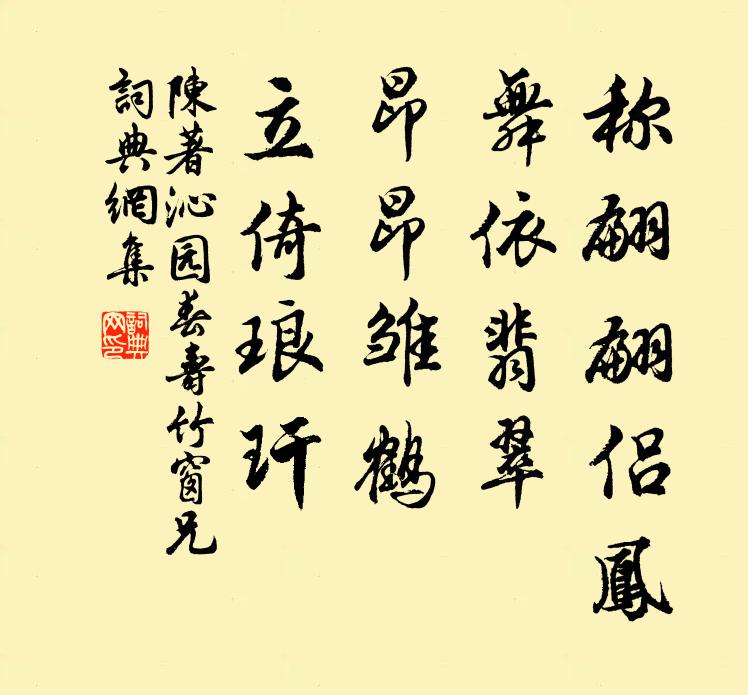 称翩翩侣鳳
舞依翡翠
昂昂雏鶴
立倚琅玕
陳著沁园春壽竹窗兄
詞典網集
詞典
网印